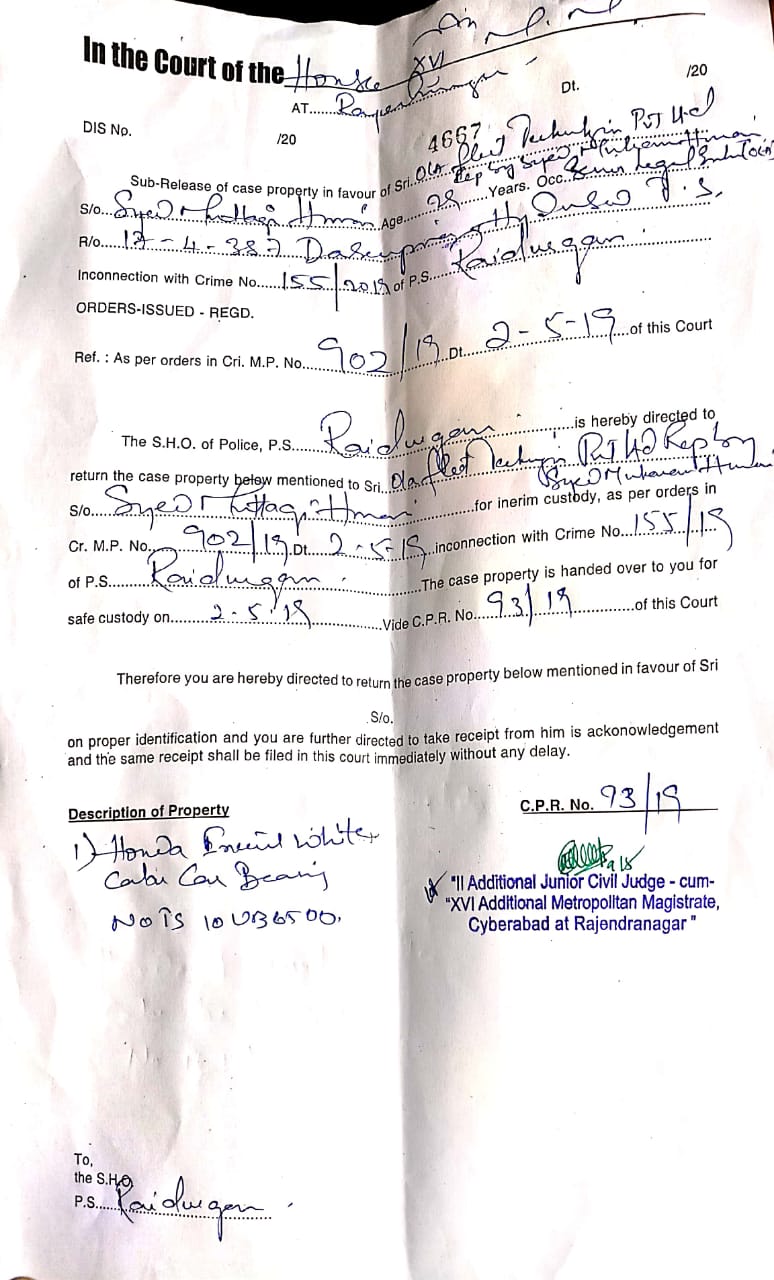 In the Court of the Honble XVI
AT......Rajendranagar Dt. /20
DIS No. /20
4667
Sub-Release of case property in favour of Sri..Ola fleet Technologies Pvt Ltd
Rep by Syed
S/o...Syed Age......28......Years. Occ..Senior Legal
R/o...17-4-387
Inconnection with Crime No.....155/2019 of P.S....Raidurgam
ORDERS-ISSUED - REGD.
Ref. : As per orders in Cri. M.P. No...902/19 Dt....2-5-19...of this Court
The S.H.O. of Police, P.S....Raidurgam...is hereby directed to
return the case property below mentioned to Sri..Ola fleet Pvt Ltd Rep by
Syed
S/o....Syed ...for inerim custody, as per orders in
Cr. M.P. No...902/19.Dt...2-5-19.inconnection with Crime No...155/19
of P.S......Raidurgam...The case property is handed over to you for
safe custody on......2-5-19......Vide C.P.R. No...93/19......of this Court
Therefore you are hereby directed to return the case property below mentioned in favour of Sri
S/o.
on proper identification and you are further directed to take receipt from him is ackonowledgement
and the same receipt shall be filed in this court immediately without any delay.
C.P.R. No. 93/19
Description of Property
1) Honda White
Car Bearing
No TS 10 UB 6500.
"II Additional Junior Civil Judge - cum-
"XVI Additional Metropolitan Magistrate,
Cyberabad at Rajendranagar "
To,
the S.H.O.
P.S.....Raidurgam